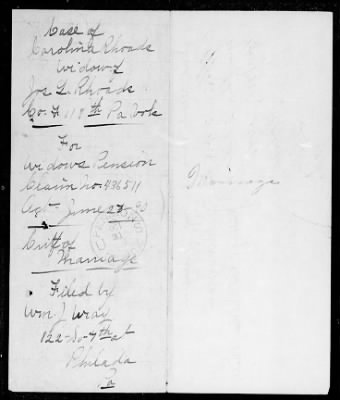 Case of
Carolina Rhoads
Widow of
Jos L. Rhoads
Co. A 119th Pa Vols
For
Widows Pension
Claim No. 436511
Act June 27-90
Cuff of
Marriage
Filed by
Wm. J. Wray
122-So-7th st
Philada
Pa
Marriage